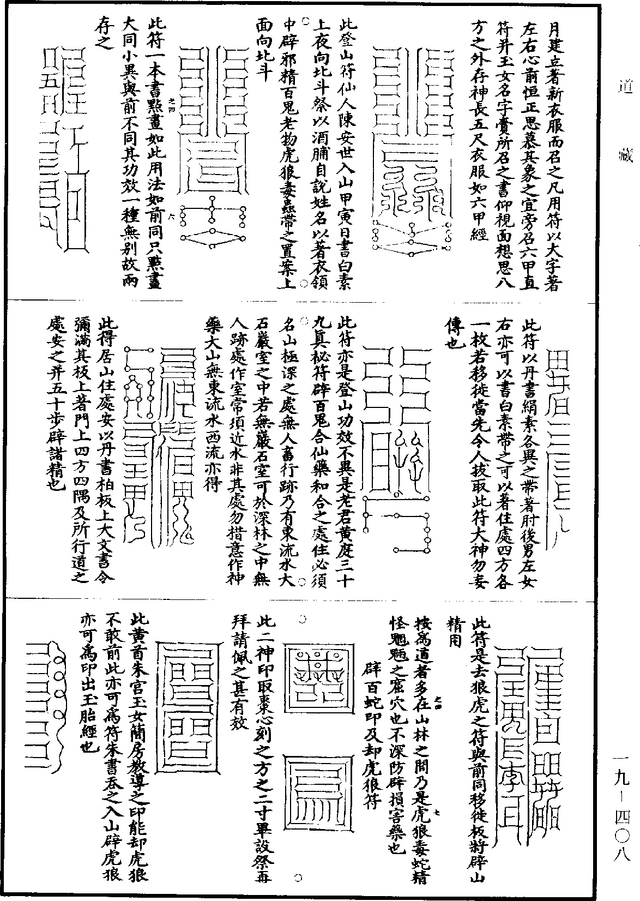 道藏
月建立著新衣服而召之凡用符以大字著
左右心前恒正思慕其象之宜旁名六甲直
符并玉女名字賷所召之書仰視面想思八
方之外存神長五尺衣服如六甲經
此登山符仙人陳安世入山甲寅日書白素
上夜向北斗祭以酒脯自說姓名以著衣領
中辟邪精百鬼老物虎狼毒蟲帶之置案上
面向北斗
此符一本書點畫如此用法如前同只點畫
大同小異與前不同其功效一種無別故兩
存之
此符以丹書絹素各異之帶著肘後男左女
右亦可以書白素帶之可以著住處四方各
一枚若移徙當先令人拔取此符大神勿妄
傳也
此符亦是登山功效不異是老君黃庭三十
九真秘符辟百鬼合仙藥和合之處住必須
名山極深之處無人畜行跡乃有東流水大
石巖室之中若無巖石室可於深林之中無
人跡處作室常須近水非其處勿措意作神
藥大山無東流水西流亦得
此得居山住處安以丹書柏板上大文書令
彌滿其板上著門上四方四隅及所行道之
處安之并五十步辟諸精也
此符是去狼虎之符與前同移徙板將辟山
精用
按為道者多在山林之間乃是虎狼毒蛇精
怪魍魎之窟穴也不深防辟損害藥也
辟百蛇印及却虎狼符
此二神印取棗心刻之方之二寸畢設祭再
拜請佩之甚有效
此黃首朱宮玉女簡房教導之印能却虎狼
不敢前此亦可為符朱書吞之入山辟虎狼
亦可為印出玉胎經也
一九-四〇八